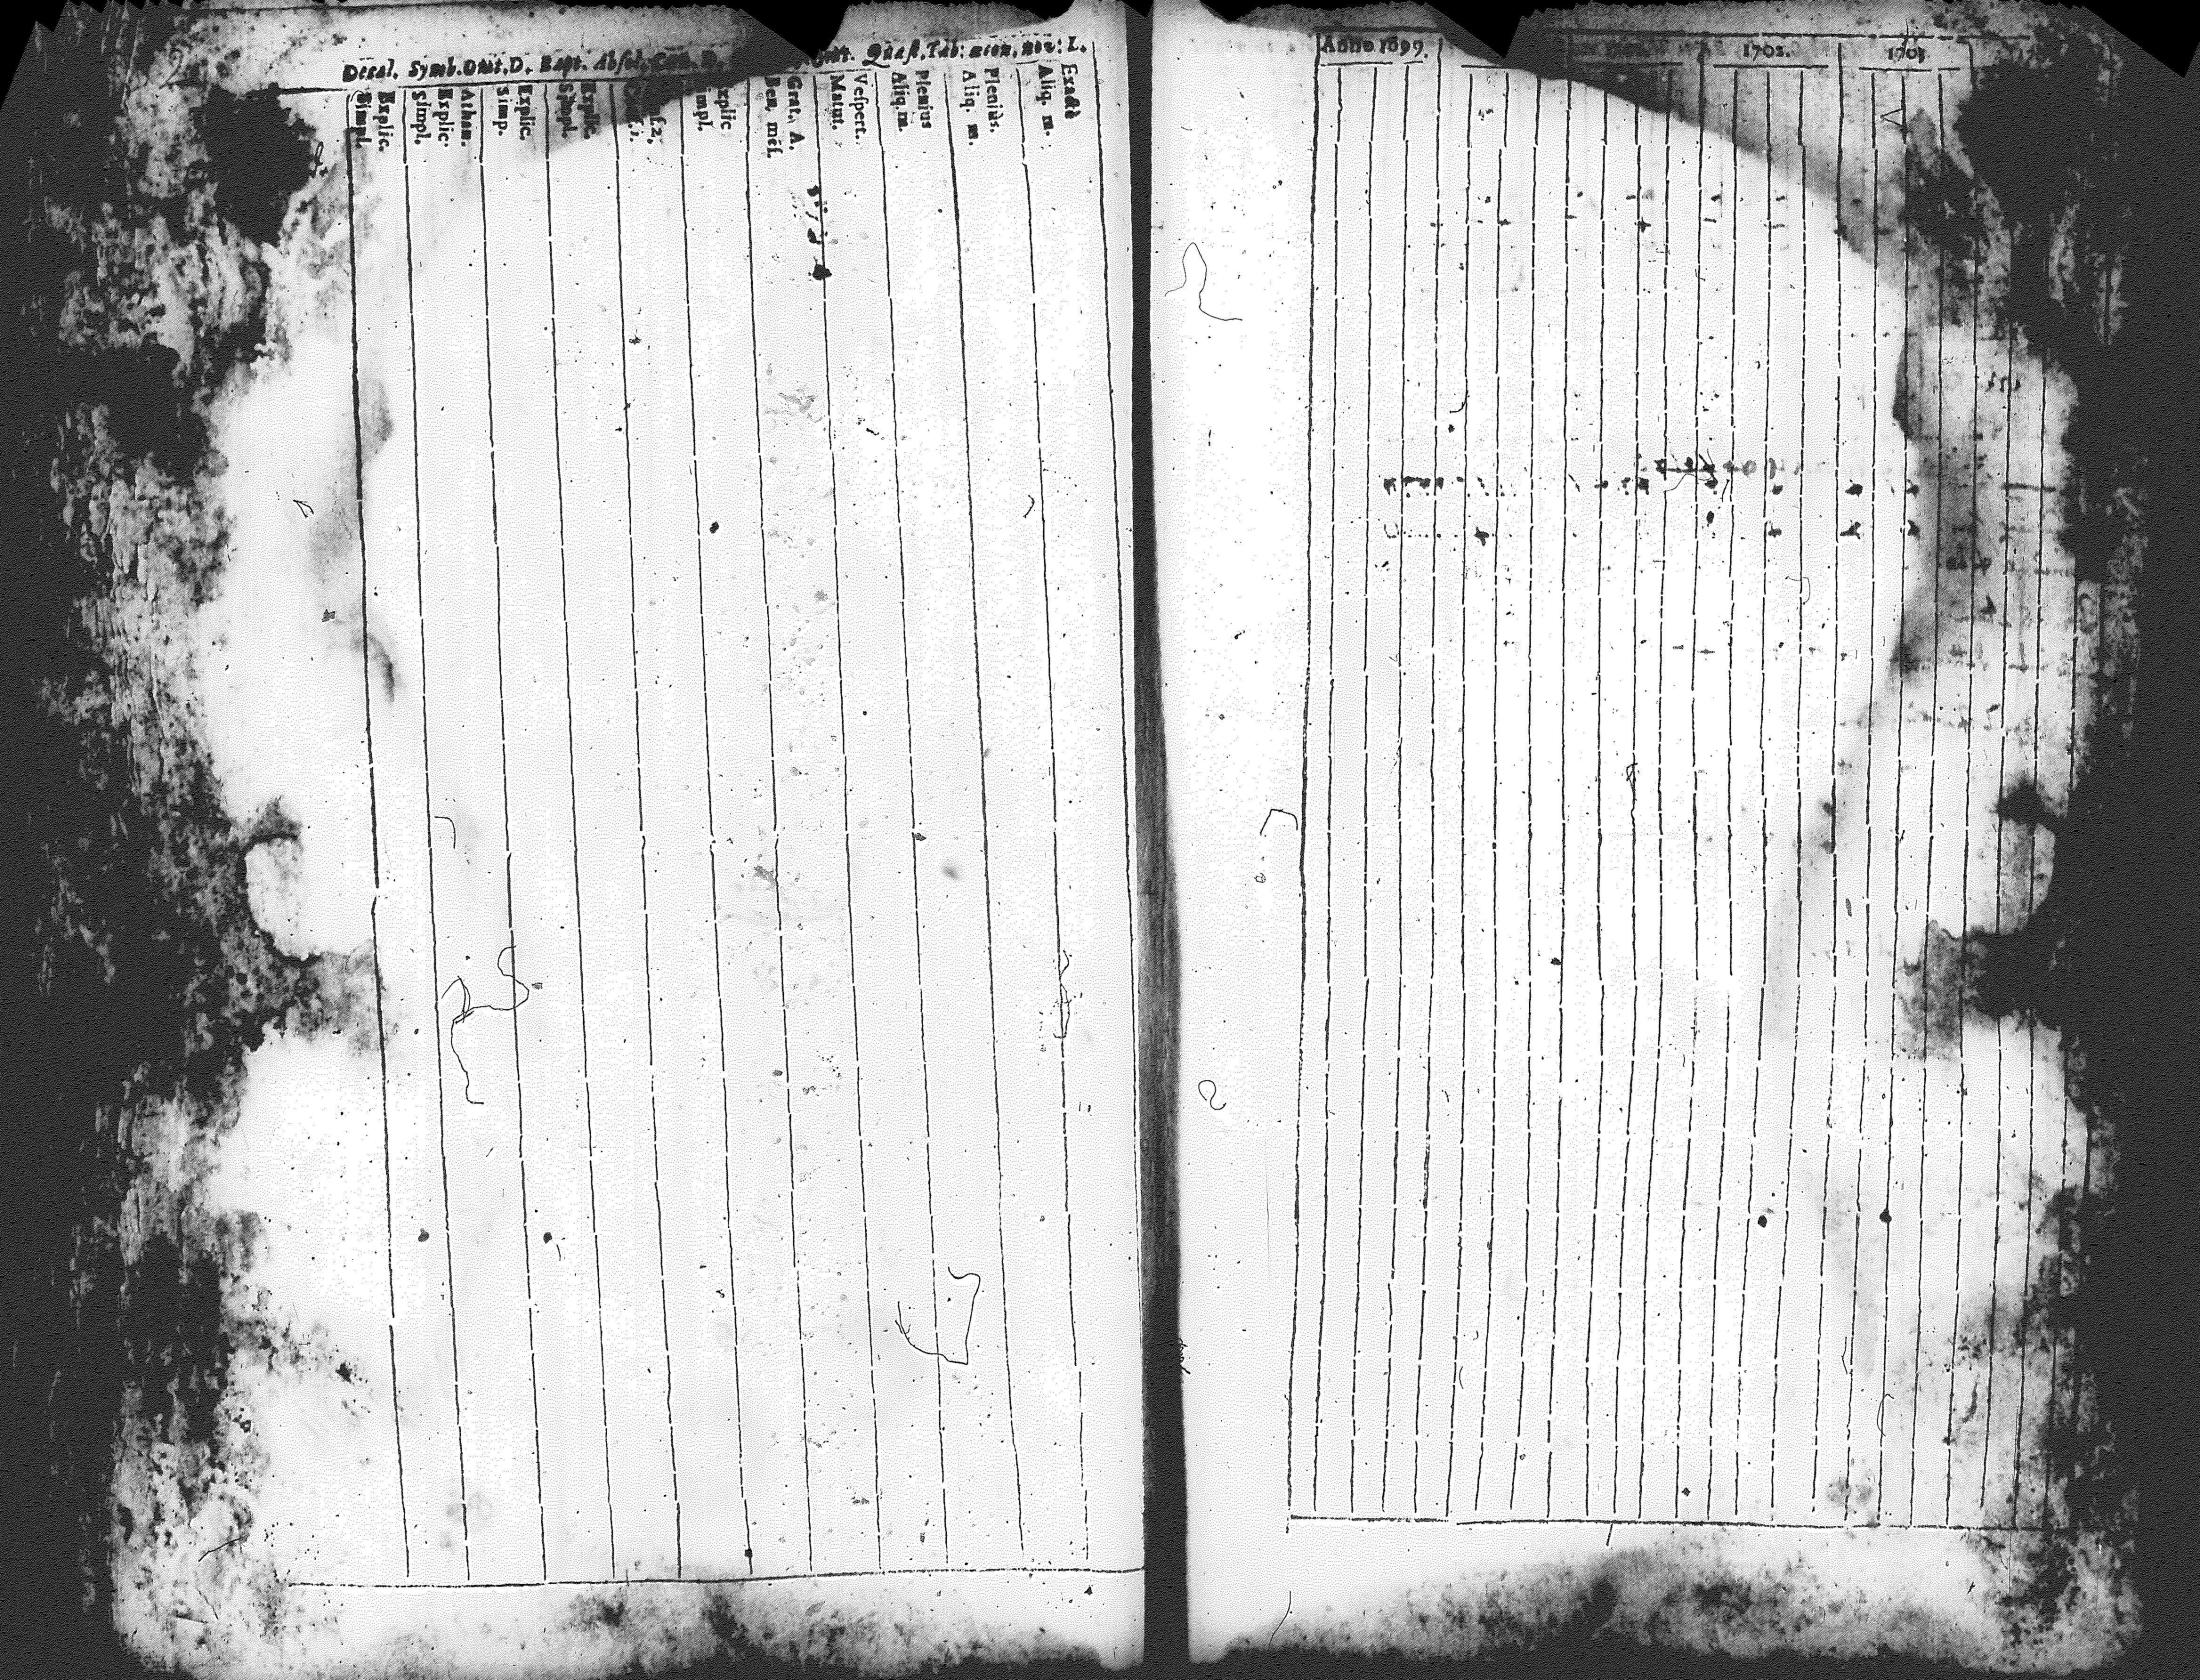 Decal. Symb. Orat. D. Bapt. Absol. Quæst. Tab: œcon. nov: L.
Simpl. Explic. Simpl. Explic. Athan. Simp. Explic. Simpl. Explic. Simpl. Explic Ben. mēs. Grat. A. Matut. Vespert. Aliq. m. Plenius Aliq. m. Pleniùs. Aliq. m. Exactè
Anno 1699. 1702. 1703